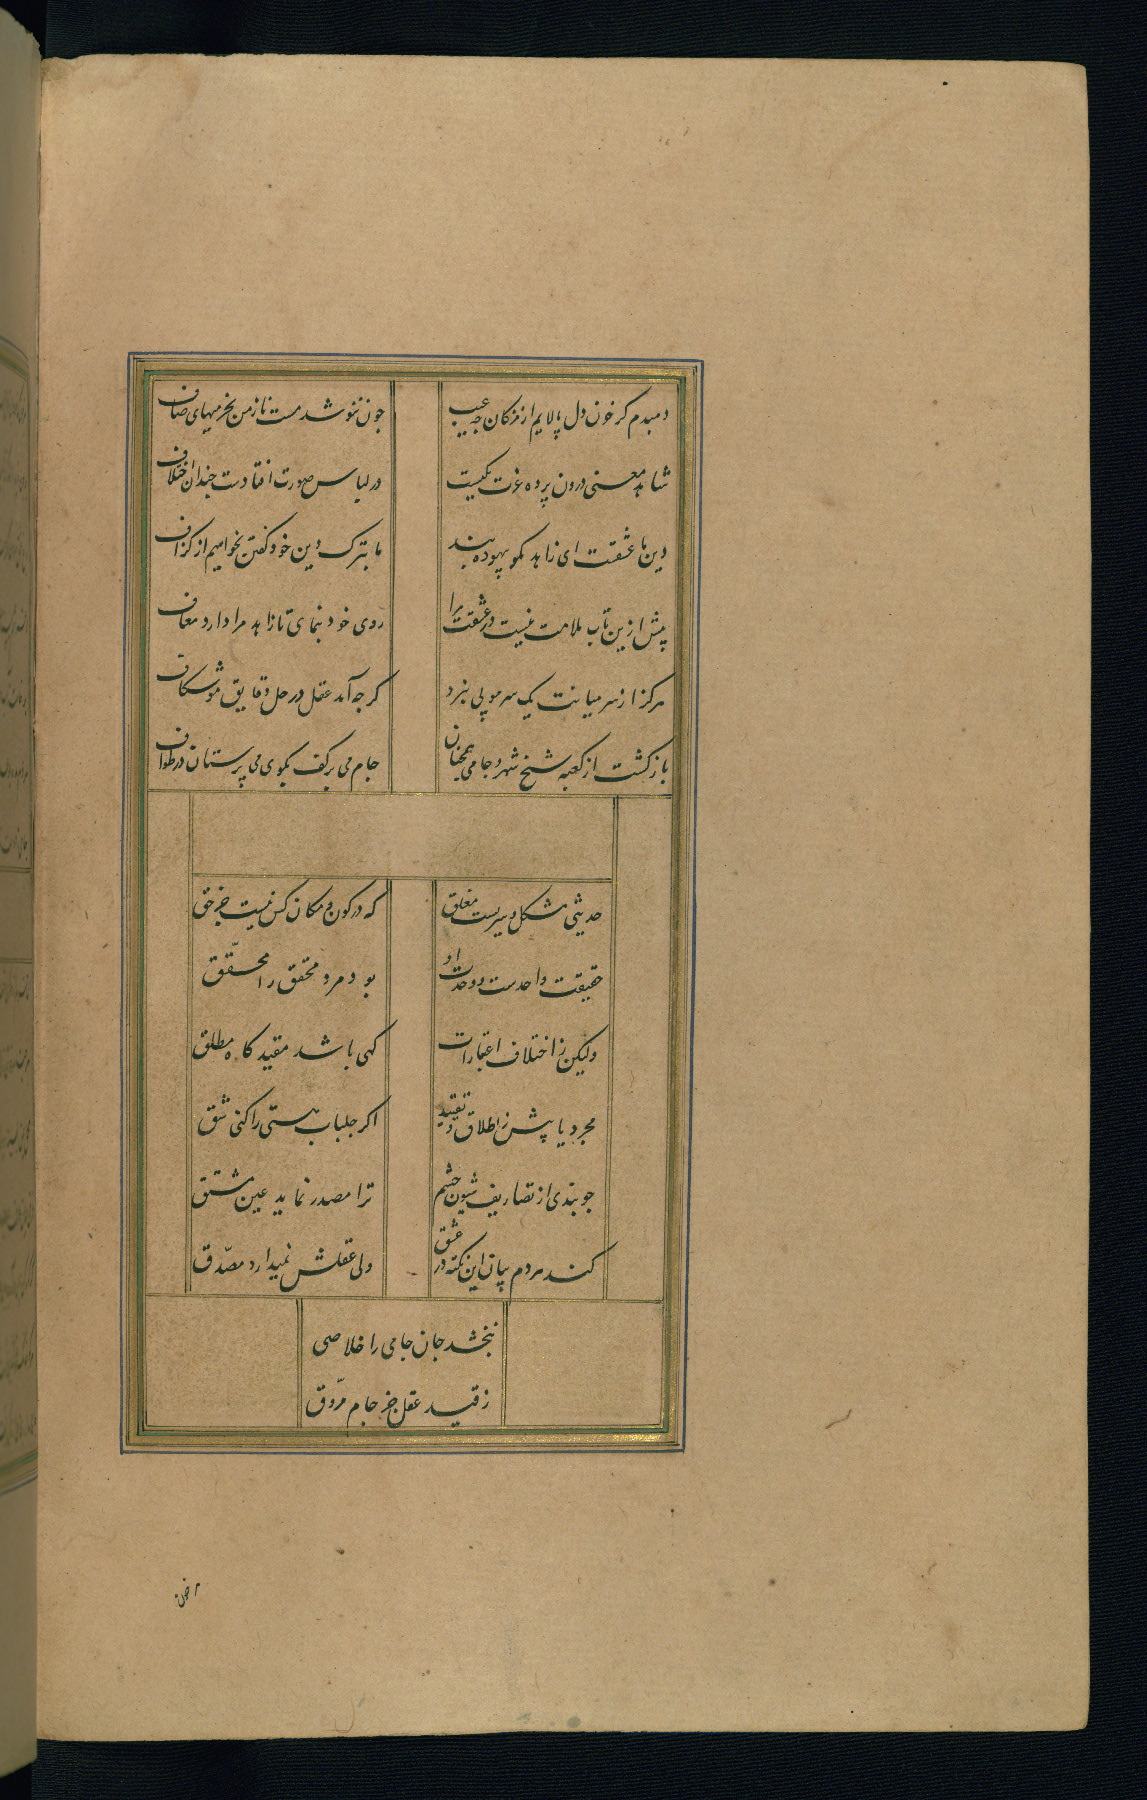 دمبدم کر خون دل پالایم از مژکان چه عیب
چون ننوشد مست ناز من بخر میهای صاف
شاهد معنی درون پرده عزت یکیست
در لباس صورت افتادست چندان اختلاف
دین ما عشقت ای زاهد مکو بیهوده پند
ما بترک دین خود کفتن نخواهیم از کزاف
پیش ازین تاب ملامت نیست در عشقت مرا
روی خود بنمای تا زاهد مرا دارد معاف
هرکز از سر میانت یک سر مو پی نبرد
کرچه آمد عقل در حل دقایق موشکاف
بازکشت از کعبه شیخ شهر و جامی همچنان
جام می بر کف بکوی می پرستان در طواف
حدیثی مشکل و سریست مغلق
که در کون و مکان کس نیست جز حق
حقیقت واحدست و وحدت او
بود مرد محقق را محقق
ولیکن ز اختلاف اعتبارات
کهی باشد مقید کاه مطلق
مجرد یابیش ز اطلاق و تقیید
اکر جلباب هستی را کنی شق
چو بندی از تصاریف شیون چشم
ترا مصدر نماید عین مشتق
کند مردم بیان این نکته در عشق
ولی عقلش نمیدارد مصدق
نبخشد جان جامی را خلاصی
ز قید عقل جز جام مروق